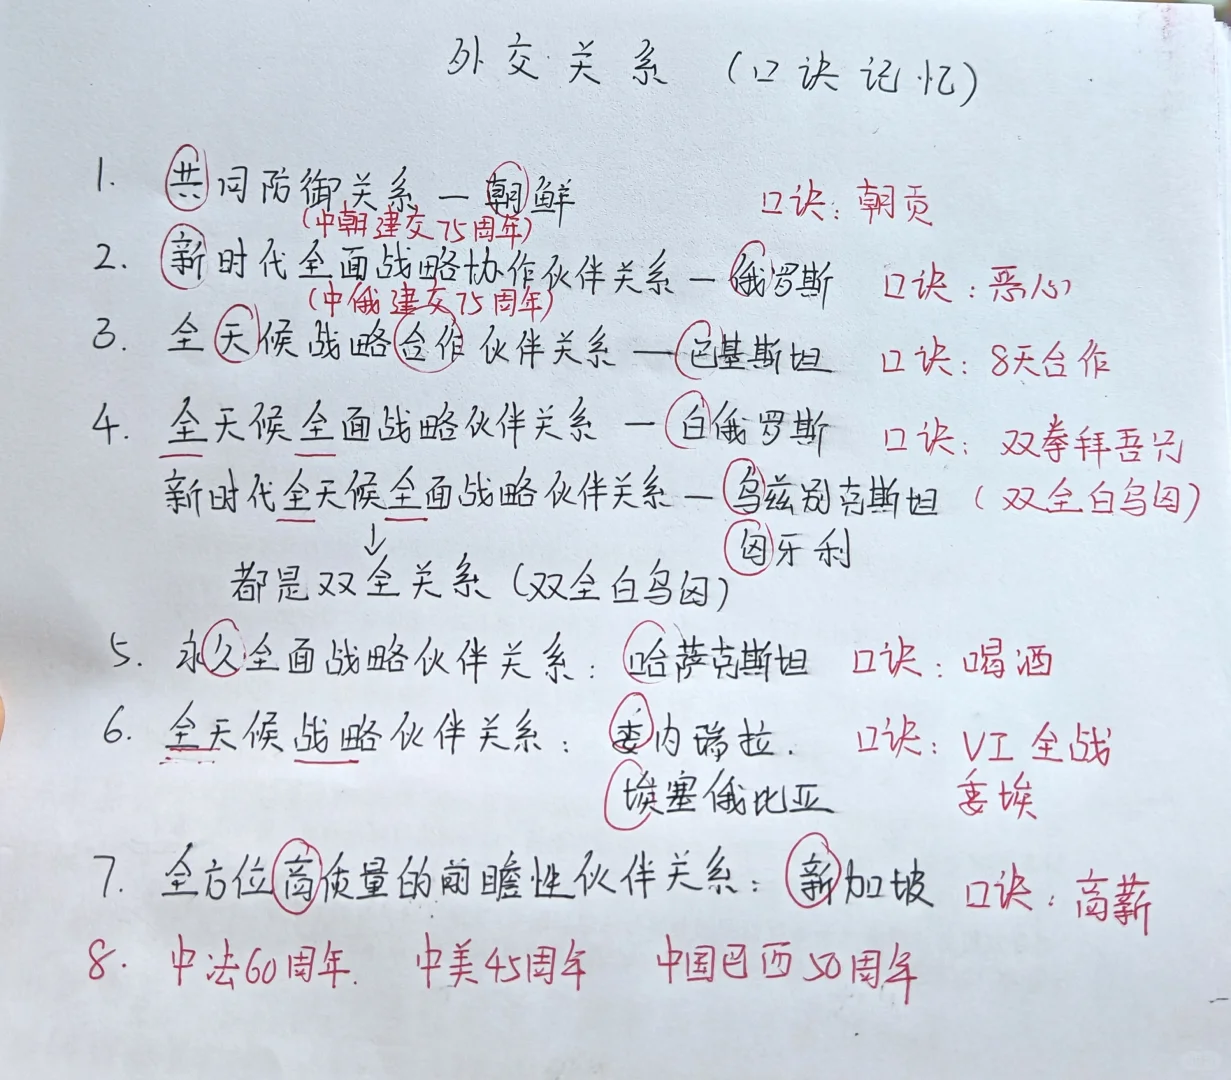 外交关系 (口诀记忆)
1. 共同防御关系 — 朝鲜 口诀: 朝贡
(中朝建交75周年)
2. 新时代全面战略协作伙伴关系 — 俄罗斯 口诀: 恶心
(中俄建交75周年)
3. 全天候战略合作伙伴关系 — 巴基斯坦 口诀: 8天合作
4. 全天候全面战略伙伴关系 — 白俄罗斯 口诀: 双拳拜吾兄
新时代全天候全面战略伙伴关系 — 乌兹别克斯坦 (双全白乌匈)
匈牙利
都是双全关系 (双全白乌匈)
5. 永久全面战略伙伴关系: 哈萨克斯坦 口诀: 喝酒
6. 全天候战略伙伴关系: 委内瑞拉. 口诀: VI 全战
埃塞俄比亚 委埃
7. 全方位高质量的前瞻性伙伴关系: 新加坡 口诀: 高薪
8. 中法60周年. 中美45周年 中国巴西50周年